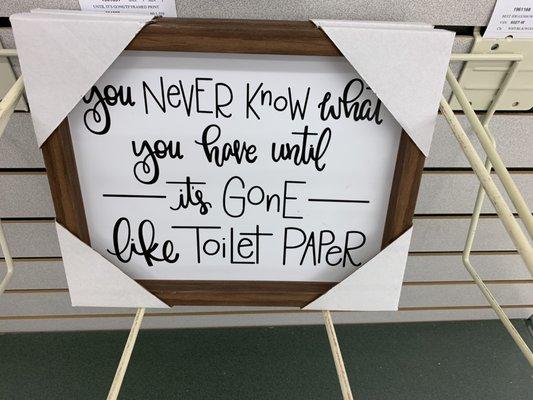 UNTIL IT'S GONE FRAMED PRINT
you NEVER KNOW what
you have until
its GONE
like TOILET PAPER